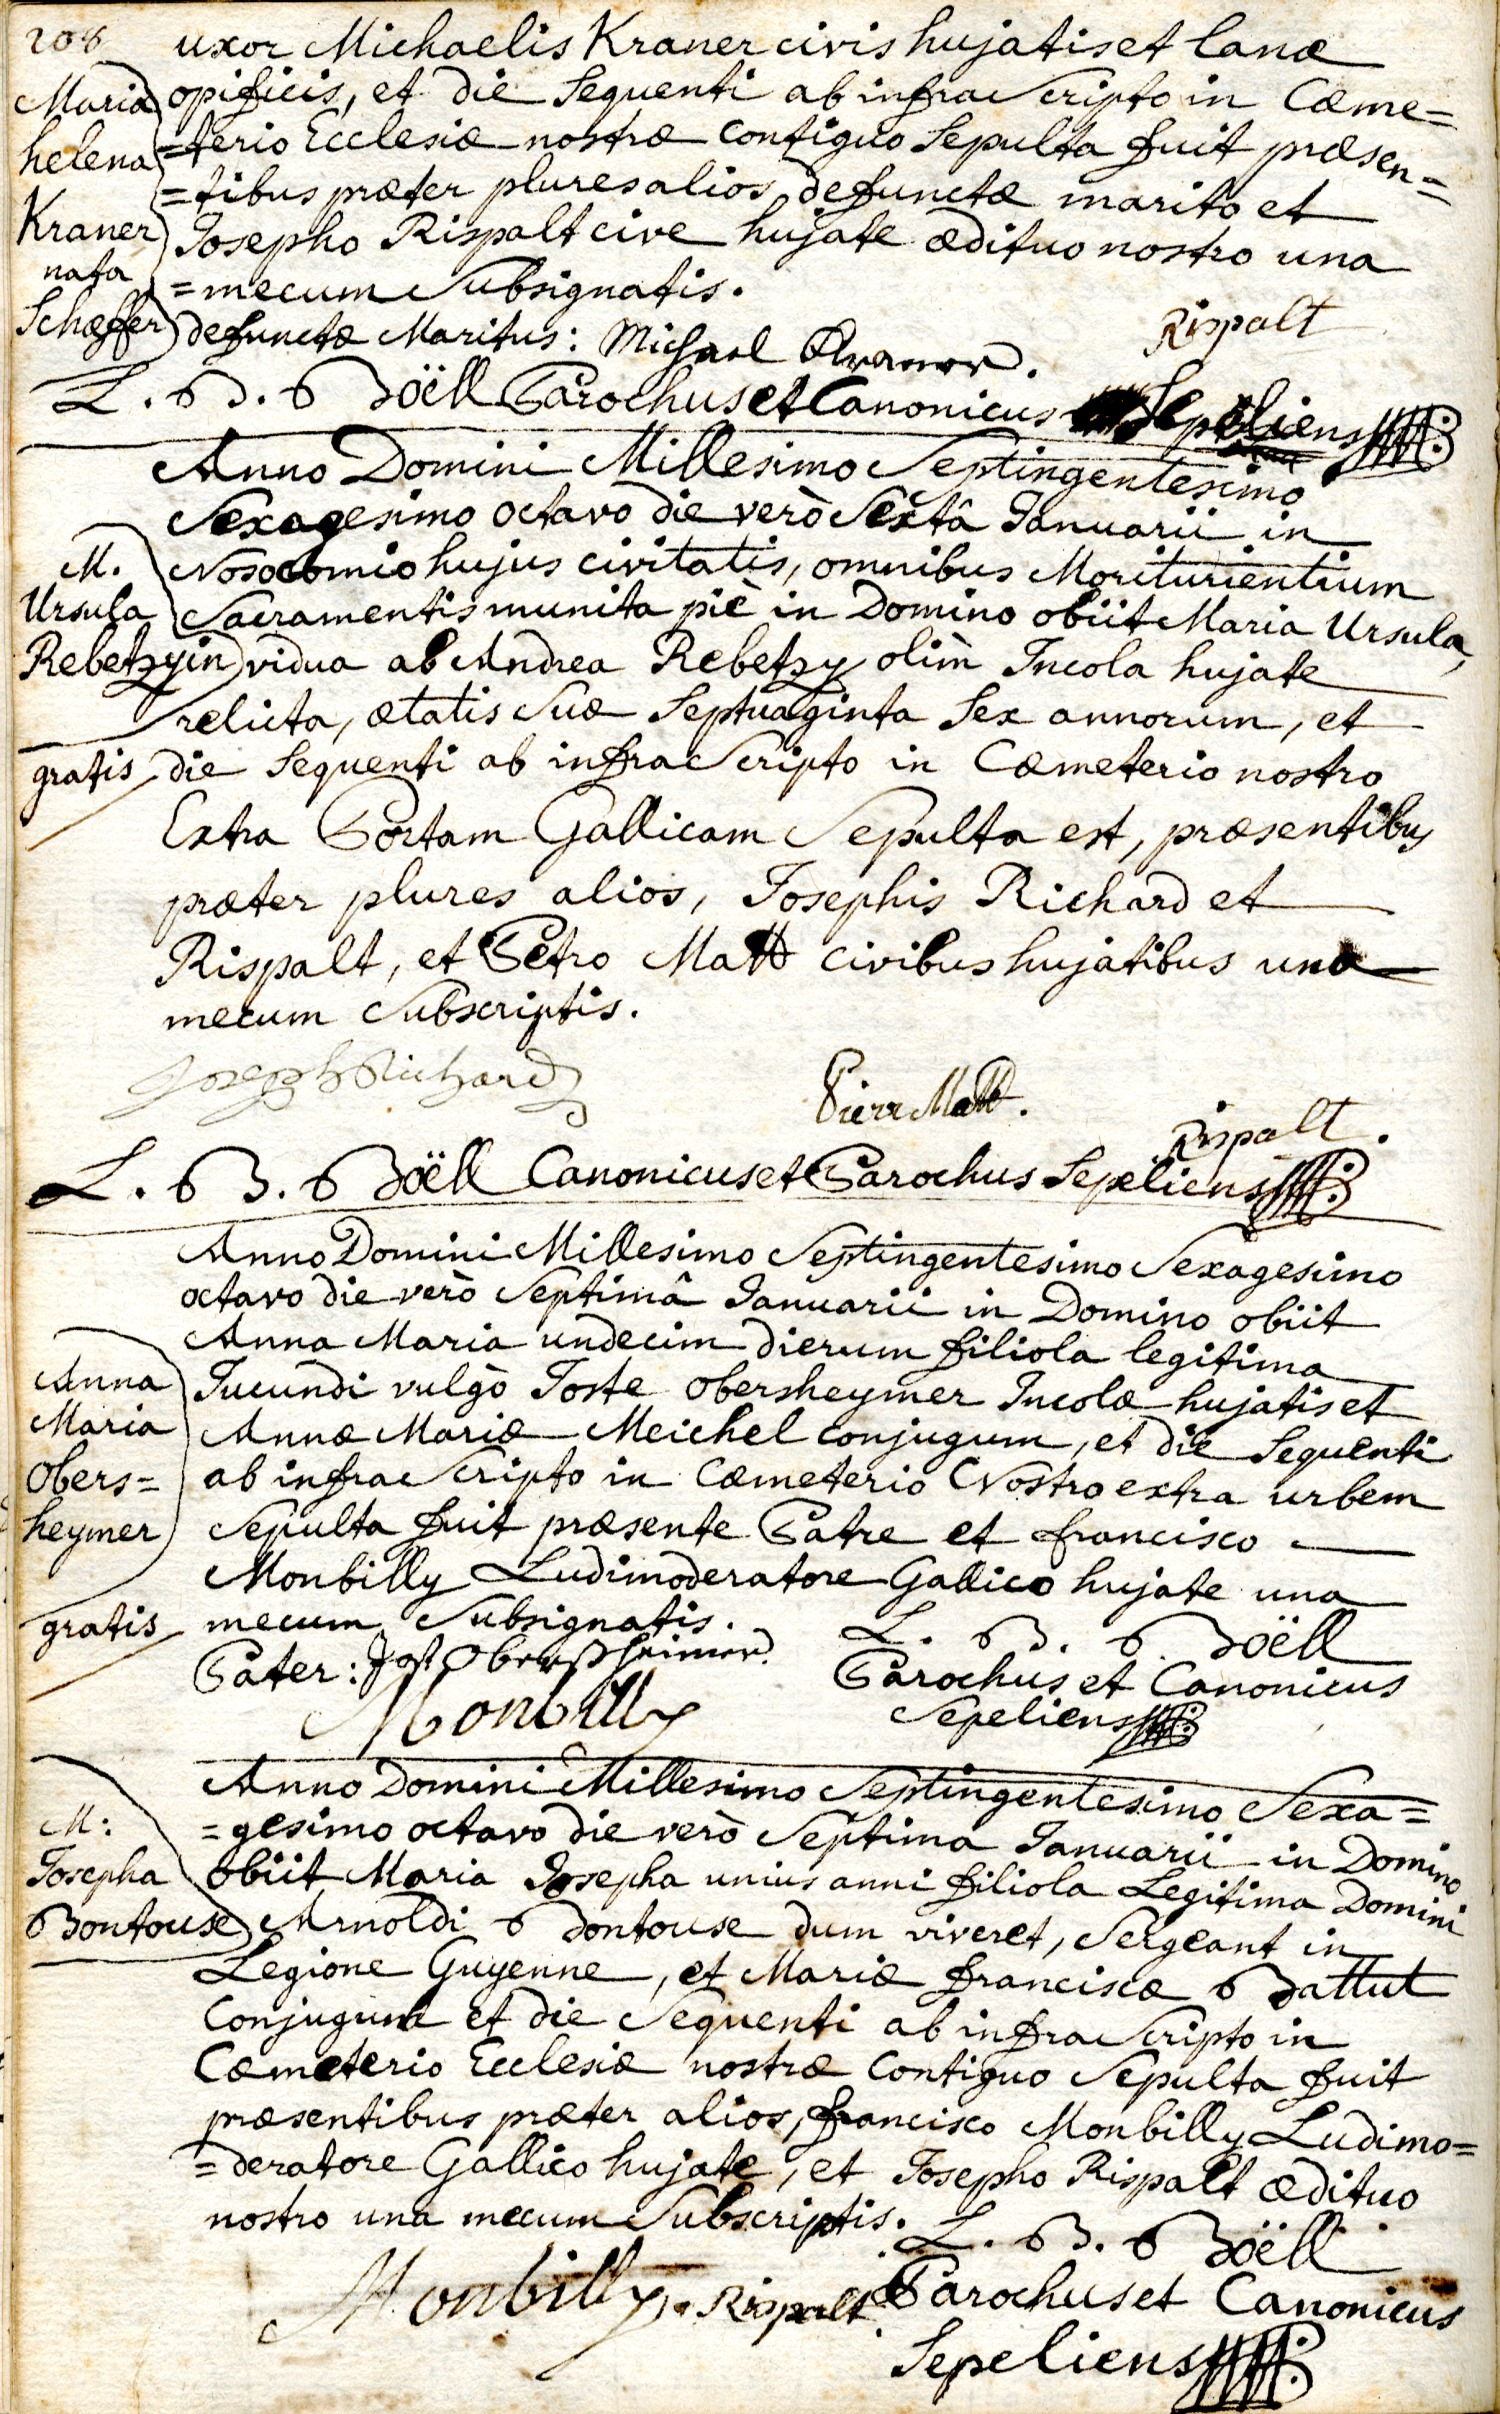 208
uxor Michaelis Kraner civis hujatis et lanæ
Maria
opificis, et die Sequenti ab infra Scripto in Cœme=
helena
=terio Ecclesiæ nostræ Contiguo Sepulta fuit præsen=
=tibus præter plures alios, defunctæ marito et
Kraner
Josepho Rispalt cive hujate ædituo nostro una
nata
=mecum Subsignatis.
Schæffer
Rispalt
defunctæ Maritus: Michael Kraner.
L. B. Boëll Parochus et Canonicus Sepeliens
Anno Domini Millesimo Septingentesimo
Sexagesimo octavo die verò Sextâ Januarii in
M.
Nosocomio hujus civitatis, omnibus Moriturientium
Ursula
Sacramentis munita piè in Domino obiit Maria Ursula,
Rebetzyin
vidua ab Andrea Rebetzy olim Incola hujate
relicta, ætatis Suæ Septuaginta Sex annorum, et
gratis
die Sequenti ab infra Scripto in Cœmeterio nostro
Extra Portam Gallicam Sepulta est, præsentibus
præter plures alios, Josephis Richard et
Rispalt, et Petro Matt civibus hujatibus una
mecum Subscriptis.
Joseph Richard
Pierr Matt.
Rispalt.
L. B. Boëll Canonicus et Parochus Sepeliens
Anno Domini Millesimo Septingentesimo Sexagesimo
octavo die verò Septimâ Januarii in Domino obiit
Anna Maria undecim dierum filiola legitima
Anna
Jucundi vulgò Joste Obersheymer Incolæ hujatis et
Maria
Annæ Mariæ Meichel conjugum, et die Sequenti
Obers=
ab infra Scripto in Cœmeterio Nostro extra urbem
heymer
Sepulta fuit præsente Patre et francisco
Monbilly Ludimoderatore Gallico hujate una
gratis
mecum Subsignatis.
L. B. Boëll
Pater: Jost Oberssheimer.
Parochus et Canonicus
Monbilly
Sepeliens
Anno Domini Millesimo Septingentesimo Sexa=
M:
=gesimo octavo die verò Septima Januarii in Domino
Josepha
obiit Maria Josepha unius anni filiola Legitima Domini
Bontouse
Arnoldi Bontouse dum viveret, Sergeant in
Legione Guyenne, et Mariæ franciscæ Battut
Conjugum et die Sequenti ab infra Scripto in
Cœmeterio Ecclesiæ nostræ Contiguo Sepulta fuit
præsentibus præter alios, francisco Monbilly Ludimo=
=deratore Gallico hujate, et Josepho Rispalt ædituo
nostro una mecum Subscriptis.
L. B. Boëll
Monbilly. Rispalt.
Parochus et Canonicus
Sepeliens